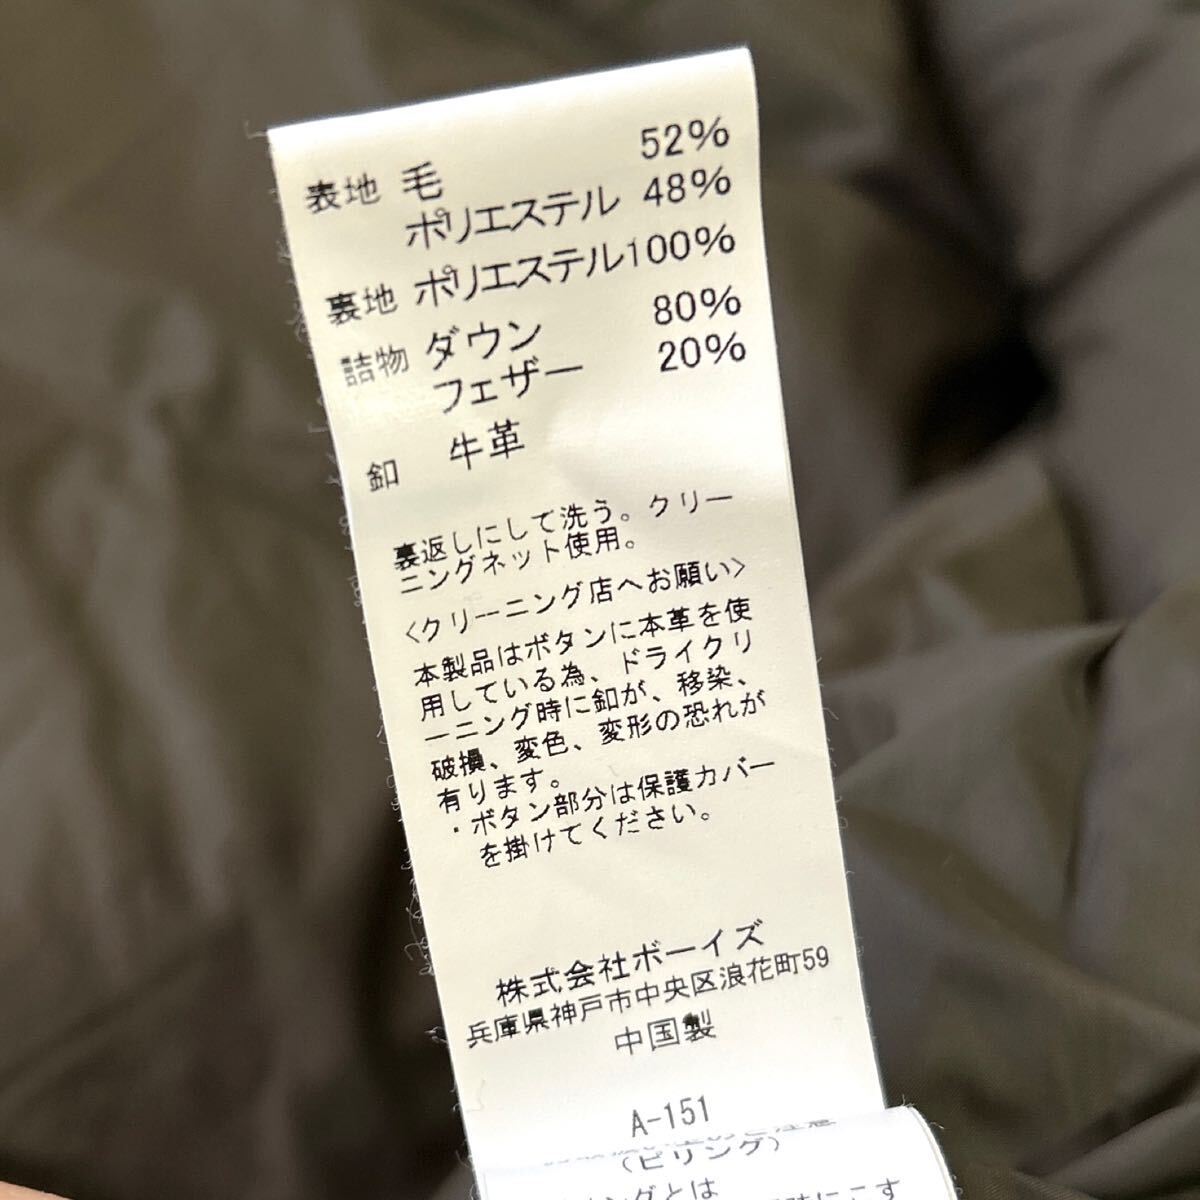 表地 毛 52%
ポリエステル 48%
裏地 ポリエステル100%
詰物 ダウン 80%
フェザー 20%
釦 牛革
裏返しにして洗う。クリー
ニングネット使用。
<クリーニング店へお願い>
本製品はボタンに本革を使
用している為、ドライクリ
ーニング時に釦が、移染、
破損、変色、変形の恐れが
有ります。
・ボタン部分は保護カバー
を掛けてください。
株式会社ボーイズ
兵庫県神戸市中央区浪花町59
中国製
A-151
(ピリング)
ングとは
にこす